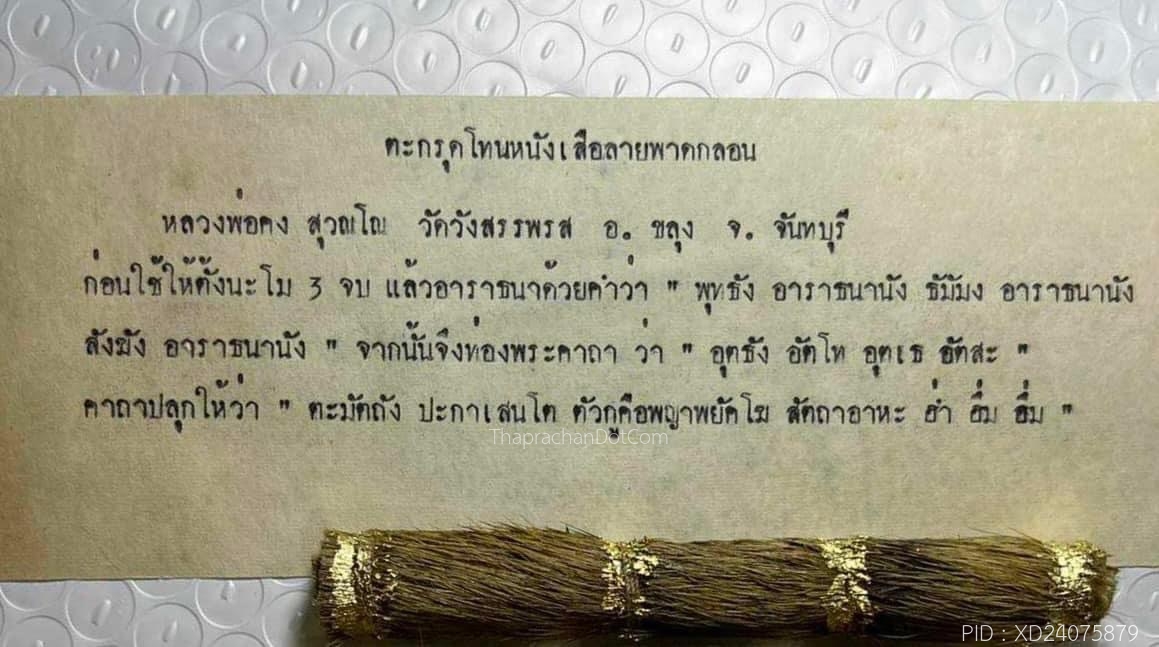 ตะกรุดโทนหนังเสือลายพาดกลอน
หลวงพ่อคง สุวณฺโณ วัดวังสรรพรส อ. ขลุง จ. จันทบุรี
ก่อนใช้ให้ตั้งนะโม 3 จบ แล้วอาราธนาด้วยคำว่า " พุทธัง อาราธนานัง ธัมมัง อาราธนานัง
สังฆัง อาราธนานัง " จากนั้นจึงท่องพระคาถา ว่า " อุทธัง อัทโท อุทเธ อัทสะ "
คาถาปลุกให้ว่า " ตะมัตถัง ปะกาเสนโต ตัวกูคือพญาพยัคโฆ สัตถาอาหะ ฮ่ำ ฮึ่ม ฮึ่ม "
ThaprachanDotCom
PID : XD24075879